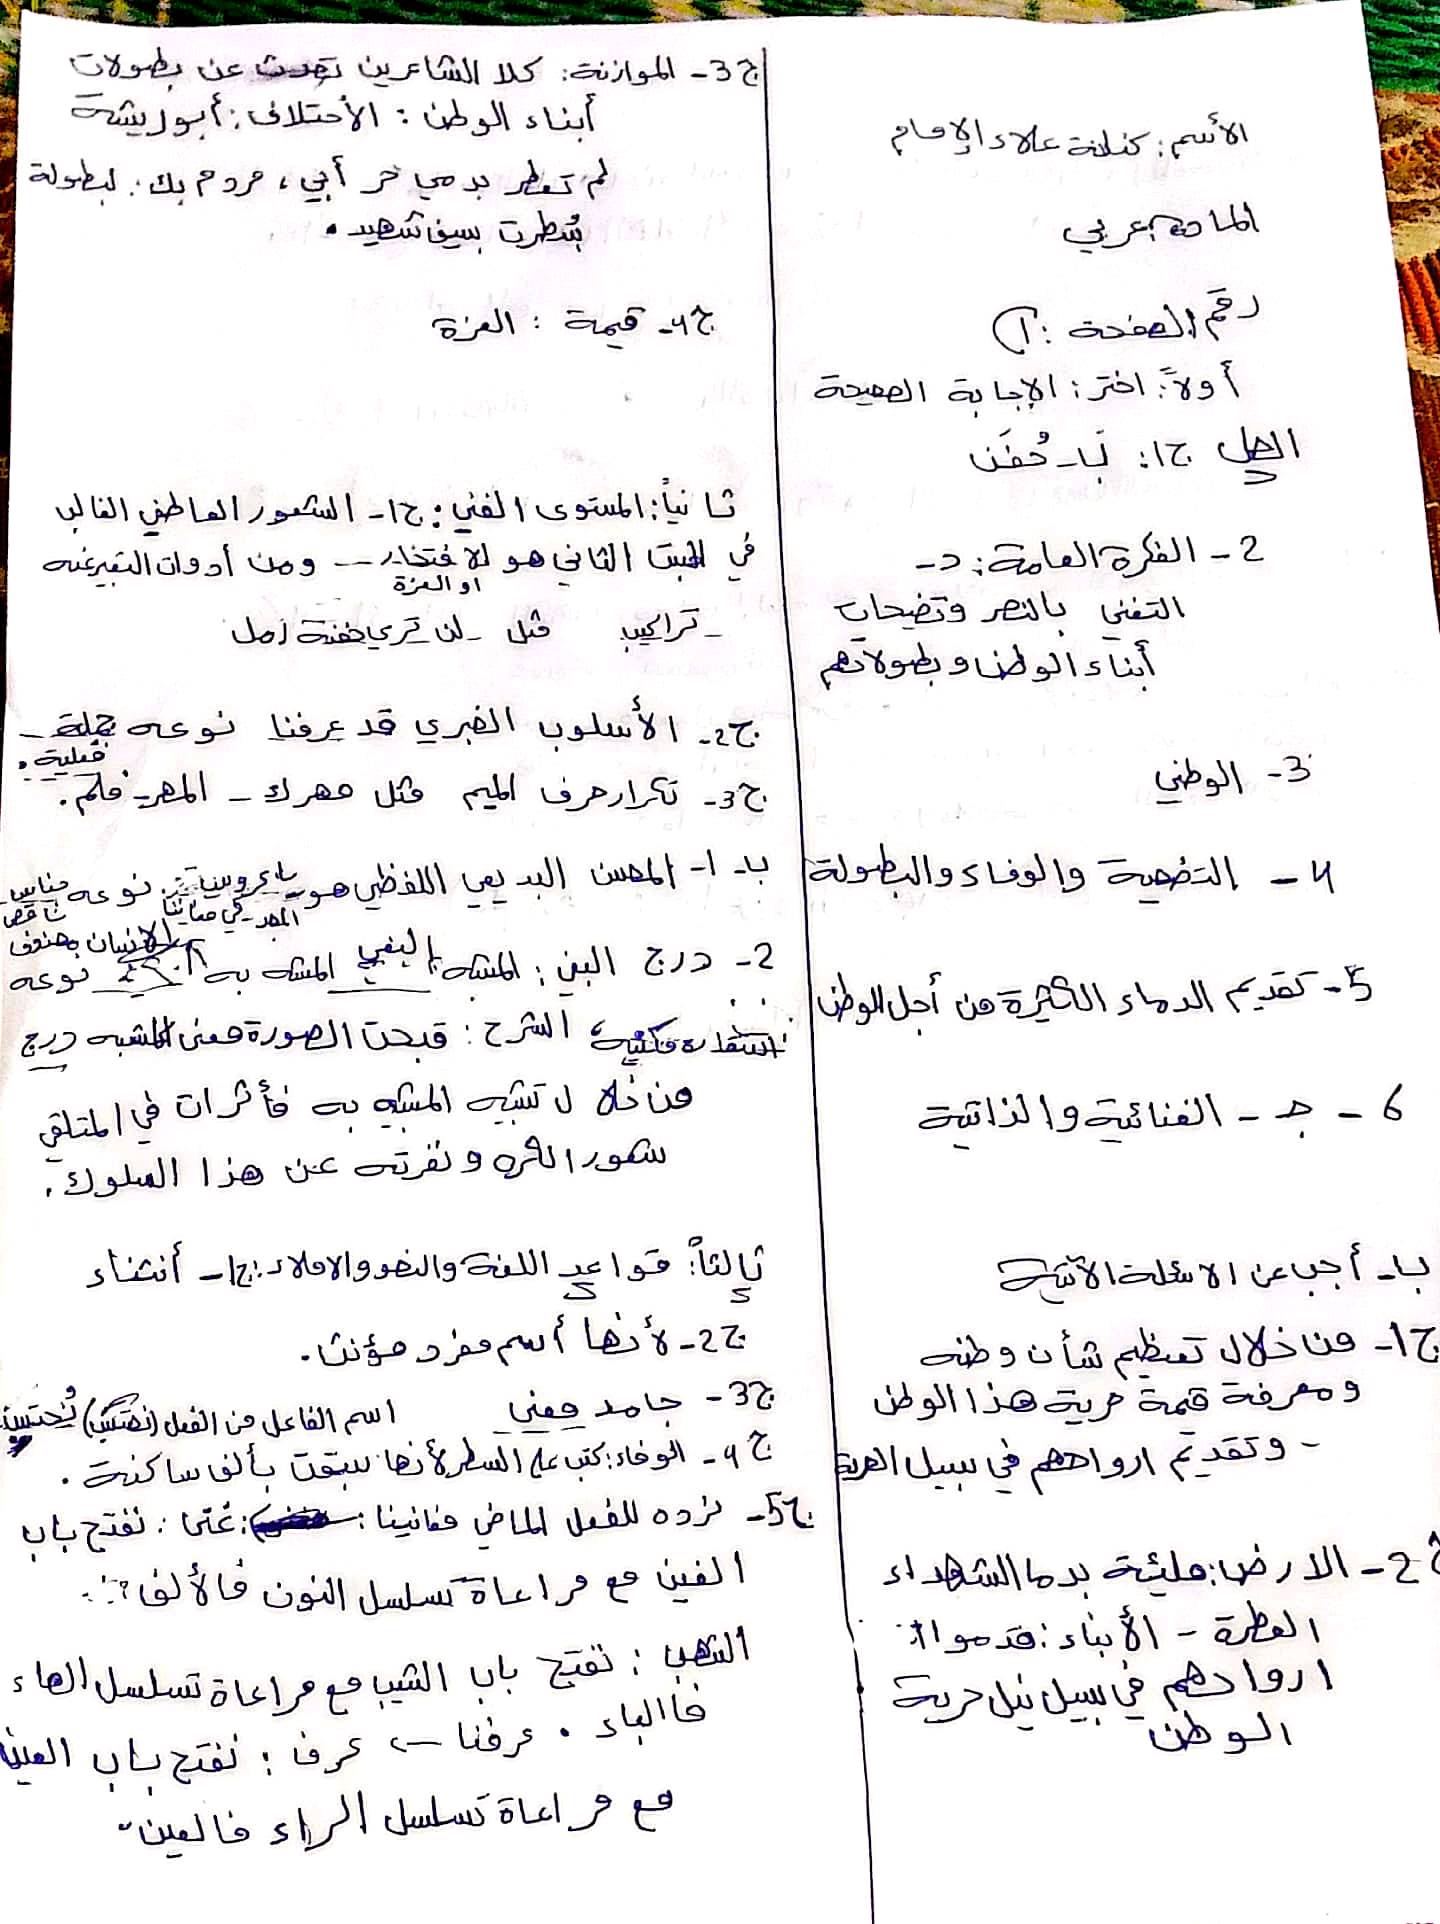 الأسم: كنانة علاء الإمام
المادة: عربي
رقم الصفحة: 1
أولاً: اختر: الإجابة الصحيحة
الحل ج1: ب- حُفَن
2- الفكرة العامة: د-
التغني بالنصر وتضحيات
أبناء الوطن وبطولاتهم
3- الوطني
4- التضحية والوفاء والبطولة
5- تقديم الدماء الكثيرة من أجل الوطن
6- جـ - الغنائية والذاتية
ب- أجب عن الاسئلة الآتية
ج1- من خلال تعظيم شأن وطنه
ومعرفة قيمة حرية هذا الوطن
- وتقديم ارواحهم في سبيل الحرية
ج2- الارض: مليئة بدما الشهداء
العطرة - الأبناء: قدموا
ارواحهم في سبيل نيل حرية
الوطن
ج3- الموازنة: كلا الشاعرين تحدث عن بطولات
أبناء الوطن: الأختلاف: أبوريشة
لم تعطر بدمي حر أبي، مردم بك: لبطولة
سُطرت بسيف شهيد.
ج4- قيمة: العزة
ثانياً: المستوى الفني: ج1- الشعور العاطفي الغالب
في البيت الثاني هو الافتخار - ومن أدوات التعبير عنه
او العزة
- تراكيب مثل - لن تري حفنة رمل
ج2- الأسلوب الخبري قد عرفنا نوعه جملة -
فعلية.
ج3- تكرار حرف الميم مثل مهرك - المهر - فلم.
ب- 1- المحسن البديعي اللفظي هو يا عروس المجد - في مغانينا نوعه جناس ناقص
2- درج البغي: المشبه: البغي المشبه به الإنسان محذوف نوعه
استعارة مكنية، الشرح: قبحت الصورة معنى المشبه درج
من خلال تشبيه المشبه به فأثرات في المتلقي
شعور الكره ونفرته عن هذا السلوك.
ثالثاً: قواعد اللغة والنحو والاملاء: ج1- أنثناء
ج2- لأنها أسم مفرد مؤنث.
ج3- جامد معنى اسم الفاعل من الفعل
ج4- الوفاء: كتب على السطر لأنها سبقت بألف ساكنة.
ج5- نرده للفعل الماضي مغانينا: غنى: نفتح باب
الغين مع مراعاة تسلسل النون فالألف
الشهب: نفتح باب الشين مع مراعاة تسلسل الهاء
فاالباء. عرفنا ← عرف: نفتح باب العين
مع مراعاة تسلسل الراء فالعين.